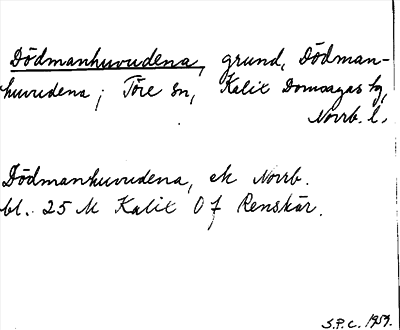 Dödmanhuvudena, grund, Dödman-
huvudena; Töre sn, Kalix Domsagas tg,
Norrb. l.
Dödmanhuvudena, ek Norrb.
bl. 25 M Kalix Of Renskär.
S.P.C. 1959.